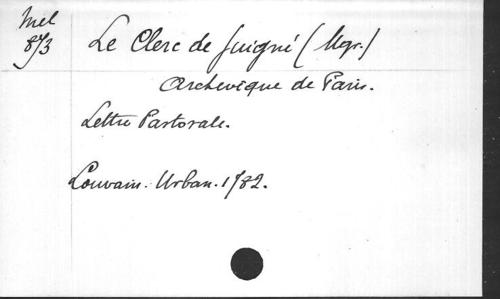 Mel
873
Le Clerc de Juigné (Mgr.)
Archevêque de Paris.
Lettre Pastorale.
Louvain. Urban. 1782.